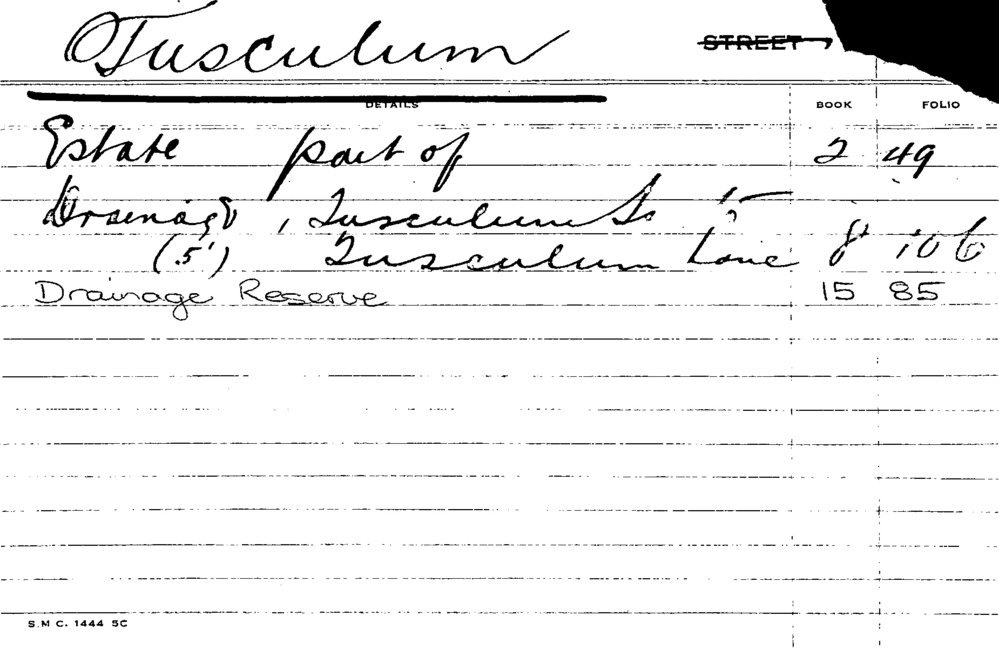 Tusculum STREET
DETAILS BOOK FOLIO
Estate part of 2 49
Drainage, Tusculum St to
(5') Tusculum Lane 8 106
Drainage Reserve 15 85
S.M C. 1444 5C